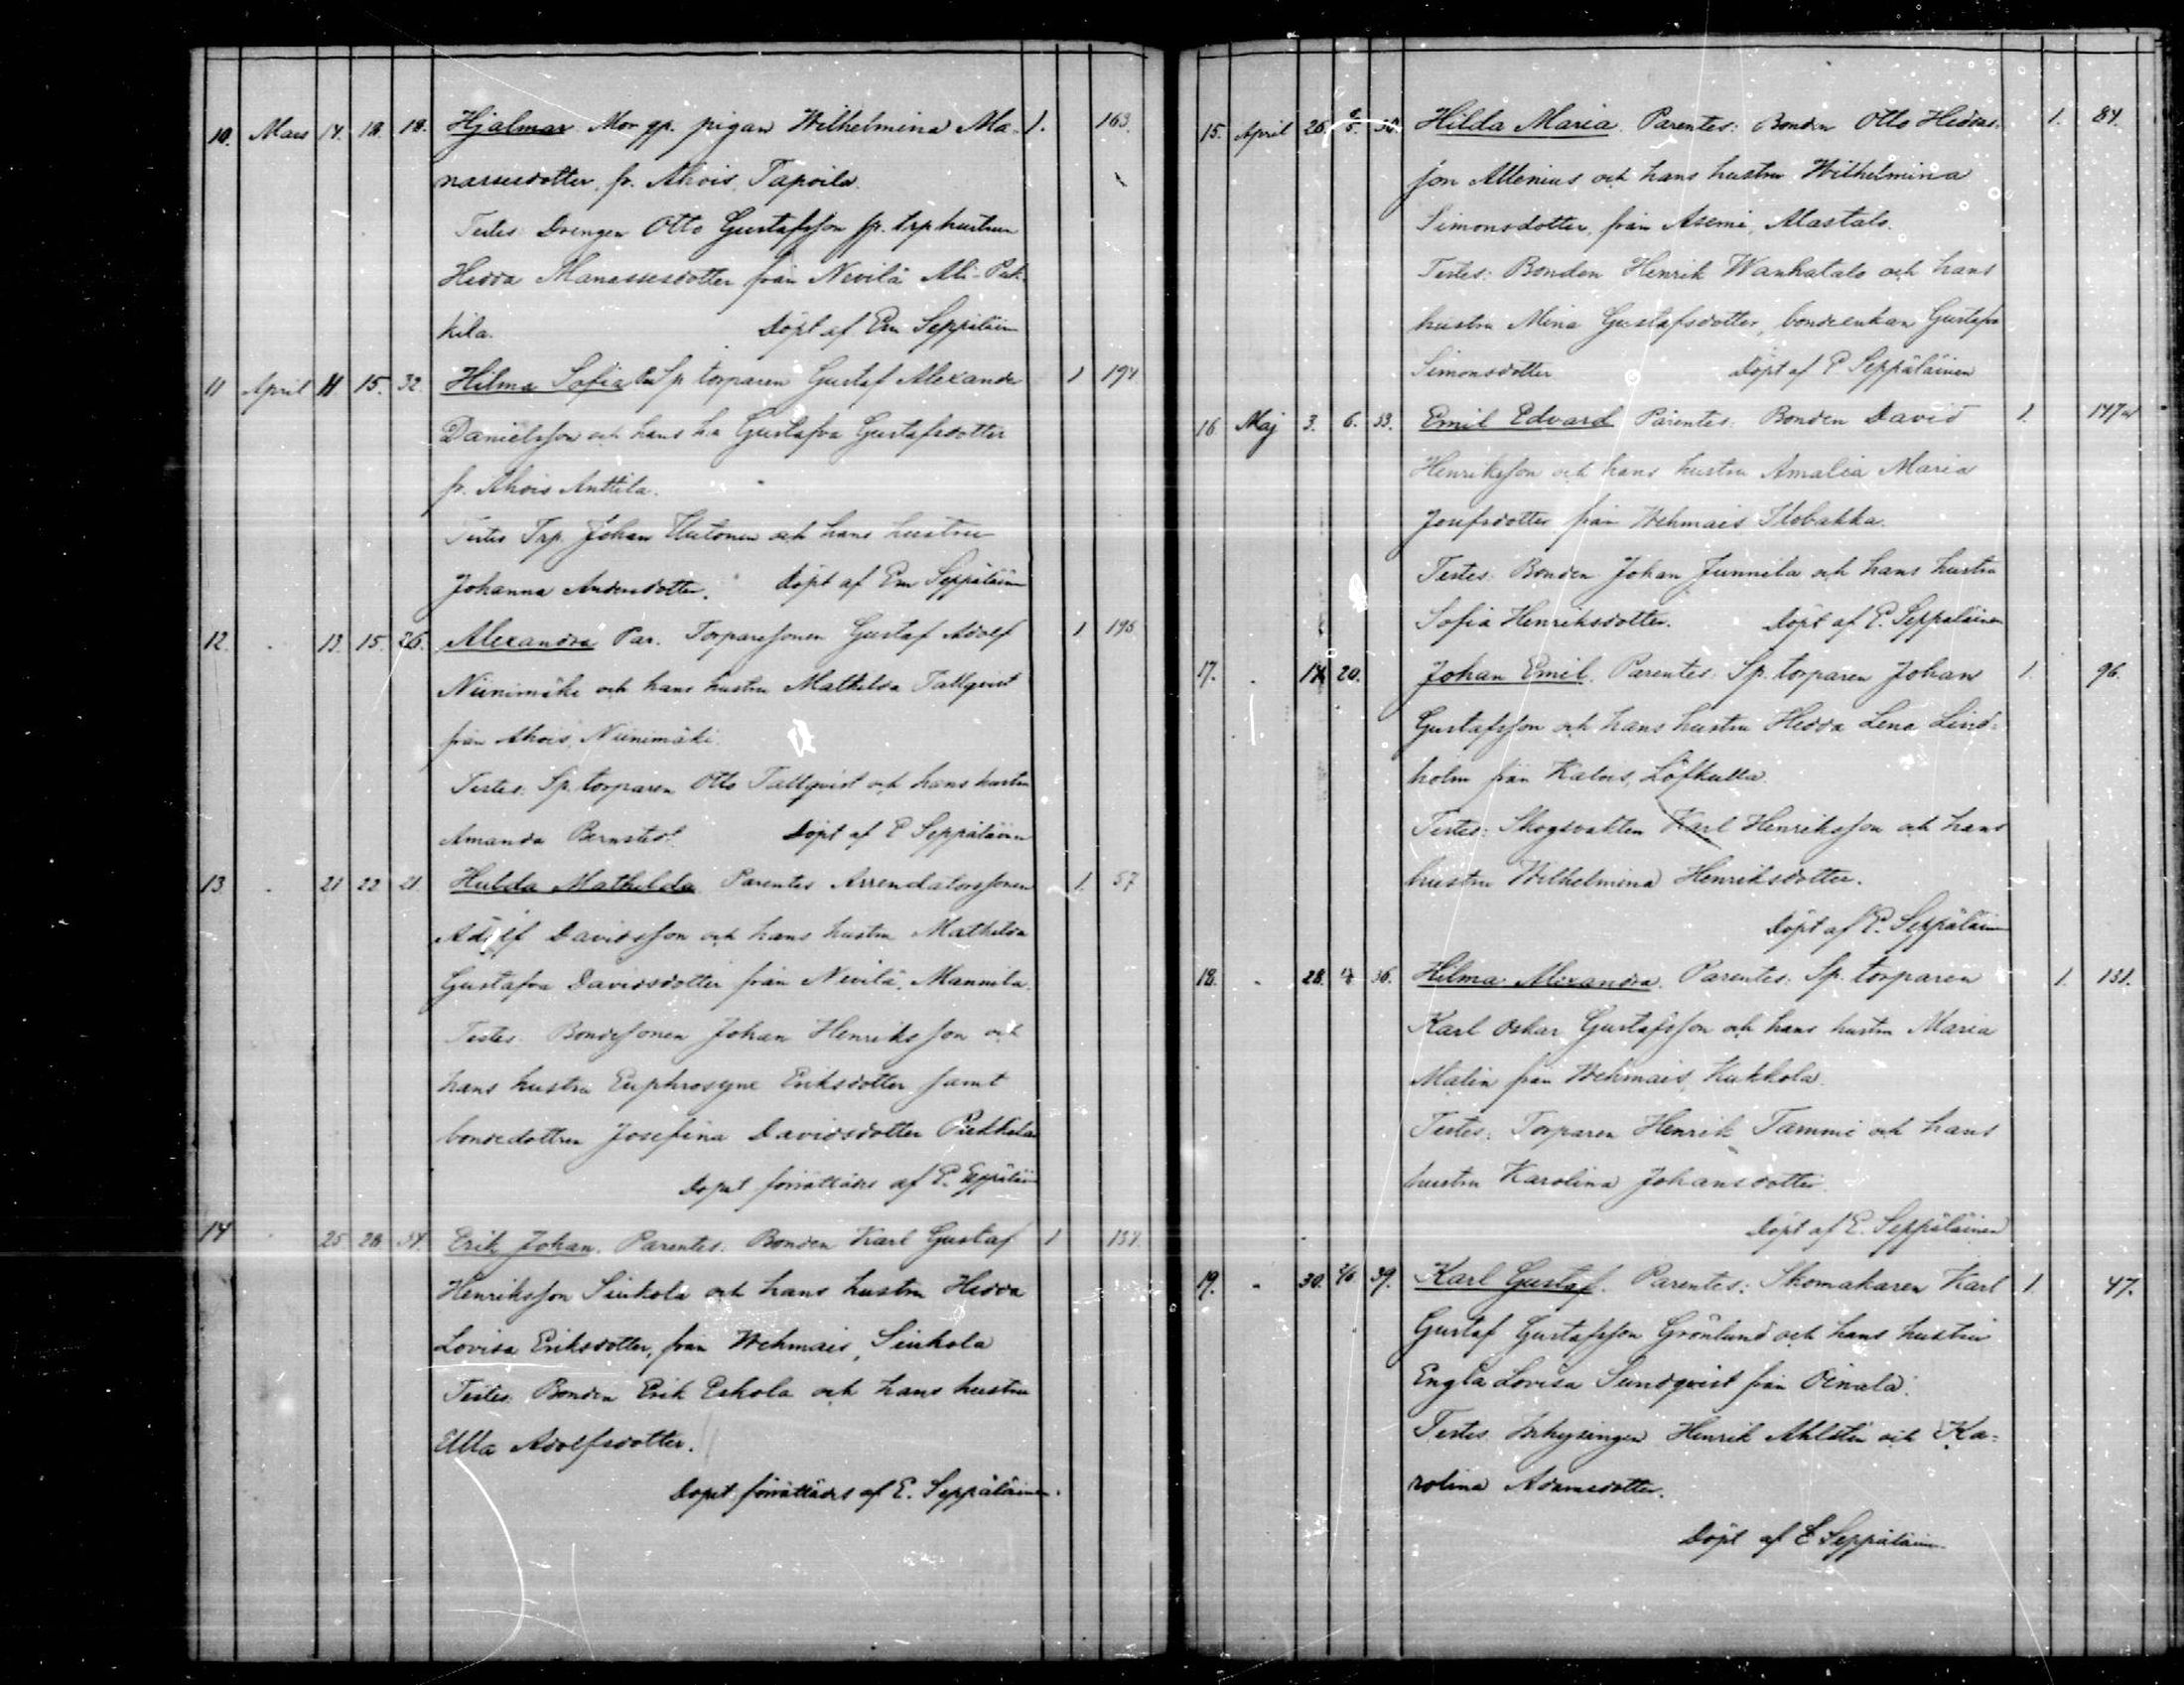 10. Mars 14. 18. 18. Hjalmar. Mor gp. pigan Wilhelmina Ma- 1. 163.
nassesdotter, fr. Ahois, Tapoila.
Testes: Drengen Otto Gustafsson sp. trp hustrun
Hedda Manassesdotter från Nevilä Ali-Puk-
kila. Döpt af Em Seppäläin
11 April 11. 15. 32. Hilma Sofia Sp torparen Gustaf Alexander 1 194.
Danielsson och hans h:a Gustafva Gustafsdotter
fr. Ahois Anttila.
Testes Trp. Johan och hans hustru
Johanna Andersdotter. Döpt af Em Seppäläin
12. 13. 15. 26. Alexandra Par. Torparesonen Gustaf Adolf 1 195
Niinimäki och hans hustru Mathilda Tallqvist
från Ahois, Niinimäki.
Testes: Sp. torparen Otto Tallqvist och hans hustru
Amanda Bernstedt. Döpt af E Seppäläinen
13. 21 22 21. Hulda Mathilda Parentes Arrendatorssonen 1. 57
Adolf Davidsson och hans hustru Mathilda
Gustafva Davidsdotter från Nevilä, Mannila.
Testes: Bondesonen Johan Henriksson och
hans hustru Euphrosyne Eriksdotter samt
bondedottren Josefina Davidsdotter
Dopet förrättades af E. Seppäläin
14 25 28. 34. Erik Johan. Parentes: Bonden Karl Gustaf 1 134.
Henriksson Siukola och hans hustru Hedda
Lovisa Eriksdotter, från Wehmais, Siukola
Testes: Bonden Erik Eskola och hans hustru
Ulla Adolfsdotter.
Dopet förrättades af E. Seppäläinen.
15. April 26 30. Hilda Maria. Parentes: Bonden Otto Hedders- 1. 84.
son Allenius och hans hustru Wilhelmina
Simonsdotter, från Asemi, Alastalo.
Testes: Bonden Henrik Wanhatalo och hans
hustru Mina Gustafsdotter, bondeenkan Gustafva
Simonsdotter Döpt af E Seppäläinen
16 Maj 3. 6. 33. Emil Edvard Parentes: Bonden David 1. 147
Henriksson och hans hustru Amalia Maria
Josefsdotter från Wehmais Ilobakka.
Testes: Bonden Johan Junnila och hans hustru
Sofia Henriksdotter. Döpt af E. Seppäläinen
17. 14 20. Johan Emil. Parentes: Sp. torparen Johan 1. 96.
Gustafsson och hans hustru Hedda Lena Lind-
holm från Kalois, Löfkulla.
Testes: Skogsvakten Karl Henriksson och hans
hustru Wilhelmina Henriksdotter.
Döpt af E. Seppäläin
18. 28. 36. Hilma Alexandra. Parentes: Sp. torparen 1. 131.
Karl Oskar Gustafsson och hans hustru Maria
Malin från Wehmais, Kukkola.
Testes: Torparen Henrik Tammi och hans
hustru Karolina Johansdotter.
Döpt af E. Seppäläinen
19. 30. 2/6. 39. Karl Gustaf. Parentes: Skomakaren Karl 1. 47.
Gustaf Gustafsson Grönlund och hans hustru
Engla Lovisa Sundqvist från Oinala.
Testes. Inhysingen Henrik Ahlstén och Ka-
rolina Adamsdotter.
Döpt af E Seppäläinen